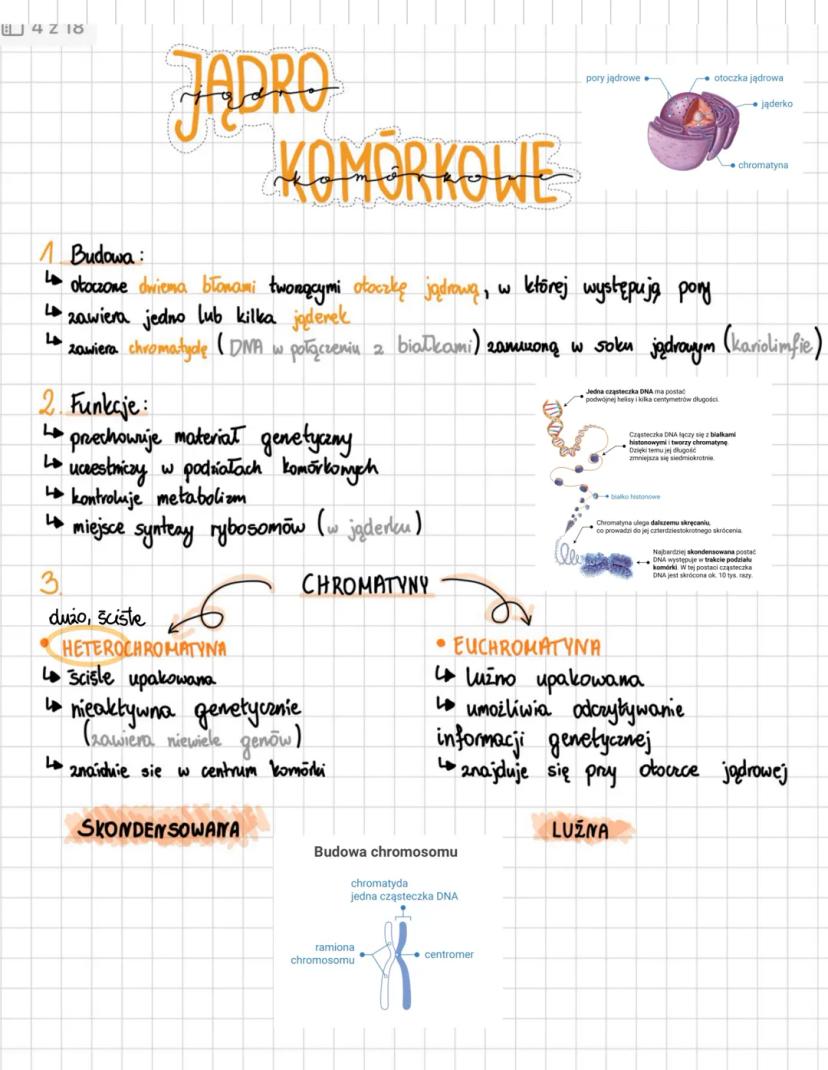 4 z 18
JĄDRO
jądro
KOMÓRKOWE
komórkowe
pory jądrowe
otoczka jądrowa
jąderko
chromatyna
1. Budowa:
↳ otoczone dwiema błonami tworzącymi otoczkę jądrową, w której występują pory
↳ zawiera jedno lub kilka jąderek
↳ zawiera chromatydę (DNA w połączeniu z białkami) zanurzoną w soku jądrowym (kariolimfie)
2. Funkcje:
↳ przechowuje materiał genetyczny
↳ uczestniczy w podziałach komórkowych
↳ kontroluje metabolizm
↳ miejsce syntezy rybosomów (w jąderku)
Jedna cząsteczka DNA ma postać
podwójnej helisy i kilka centymetrów długości.
Cząsteczka DNA łączy się z białkami
histonowymi i tworzy chromatynę.
Dzięki temu jej długość
zmniejsza się siedmiokrotnie.
białko histonowe
Chromatyna ulega dalszemu skręcaniu,
co prowadzi do jej czterdziestokrotnego skrócenia.
Najbardziej skondensowana postać
DNA występuje w trakcie podziału
komórki. W tej postaci cząsteczka
DNA jest skrócona ok. 10 tys. razy.
3.
CHROMATYNY
dużo, ściśle
• HETEROCHROMATYNA
↳ ściśle upakowana
↳ nieaktywna genetycznie
(zawiera niewiele genów)
↳ znajduje się w centrum komórki
SKONDENSOWANA
• EUCHROMATYNA
↳ luźno upakowana
↳ umożliwia odczytywanie
informacji genetycznej
↳ znajduje się przy otoczce jądrowej
LUŹNA
Budowa chromosomu
chromatyda
jedna cząsteczka DNA
ramiona
chromosomu
centromer